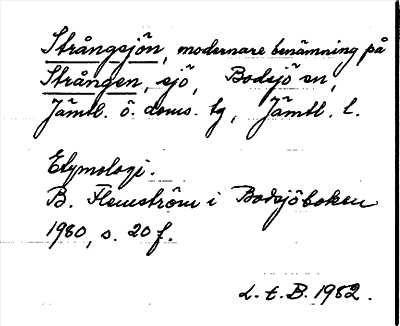 Strångsjön, modernare benämning på
Strången, sjö, Bodsjö sn,
Jämtl. ö. doms. tg, Jämtl. l.
Etymologi.
B. Flemström i Bodsjöboken
1980, s. 20 f.
L. t. B. 1982.